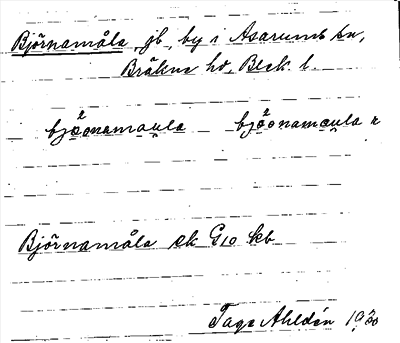 Björnamåla, jb, by i Asarums sn,
Bräkne hd, Blek. l.
bjönamaula bjönamaula
Björnamåla ek G10 kb
Tage Ahldén 1930